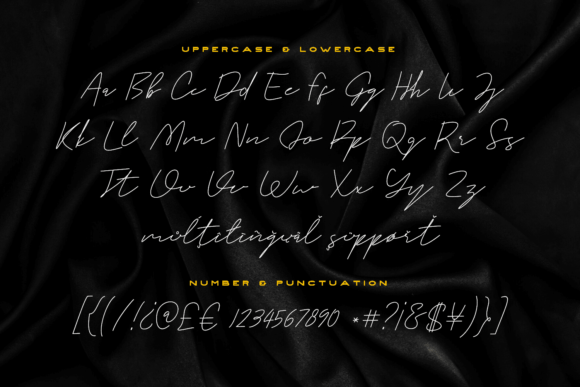 UPPERCASE & LOWERCASE
Aa Bb Cc Dd Ee Ff Gg Hh Ii Jj
Kk Ll Mm Nn Oo Pp Qq Rr Ss
Tt Uu Vv Ww Xx Yy Zz
multilingual support
NUMBER & PUNCTUATION
[{(/!¿@£€ 1234567890 *#?¡&$¥)}°]